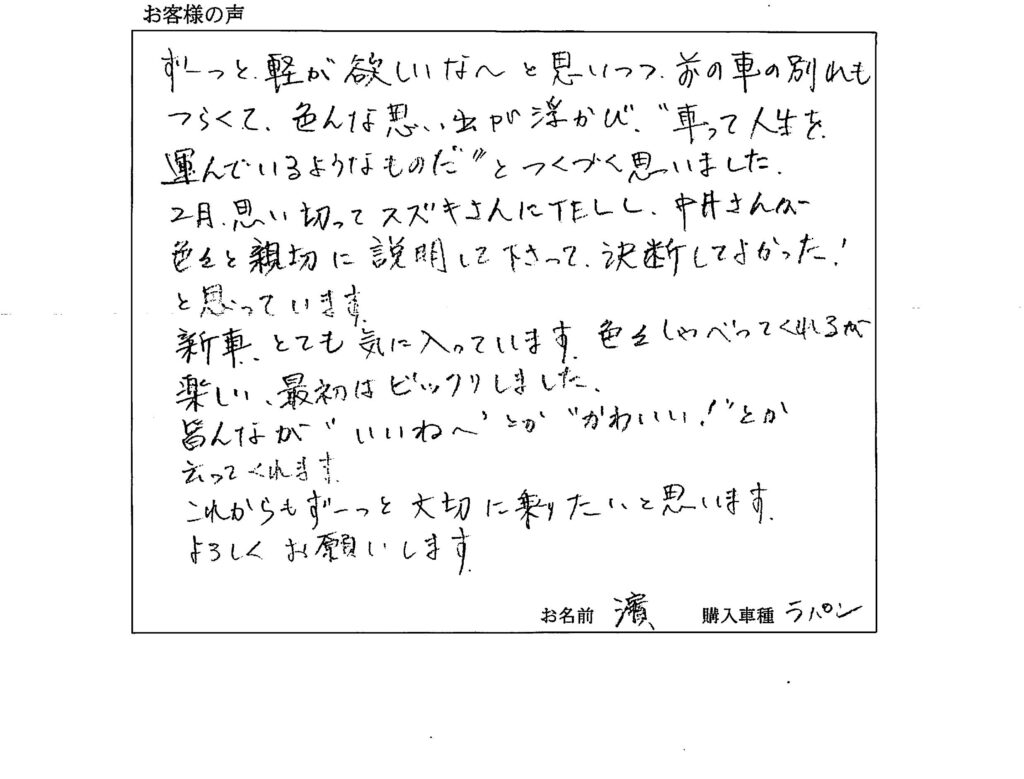 お客様の声
ずーっと、軽が欲しいな〜と思いつつ、前の車の別れも
つらくて、色んな思い出が浮かび、“車って人生を
運んでいるようなものだ”とつくづく思いました。
2月、思い切ってスズキさんにTELし、中井さんが
色々と親切に説明して下さって、決断してよかった！
と思っています。
新車、とても気に入っています。色々しゃべってくれるが
楽しい、最初はビックリしました。
皆んなが“いいね〜”とか“かわいい！”とか
云ってくれます。
これからもずーっと大切に乗りたいと思います。
よろしくお願いします。
お名前 濱 購入車種 ラパン